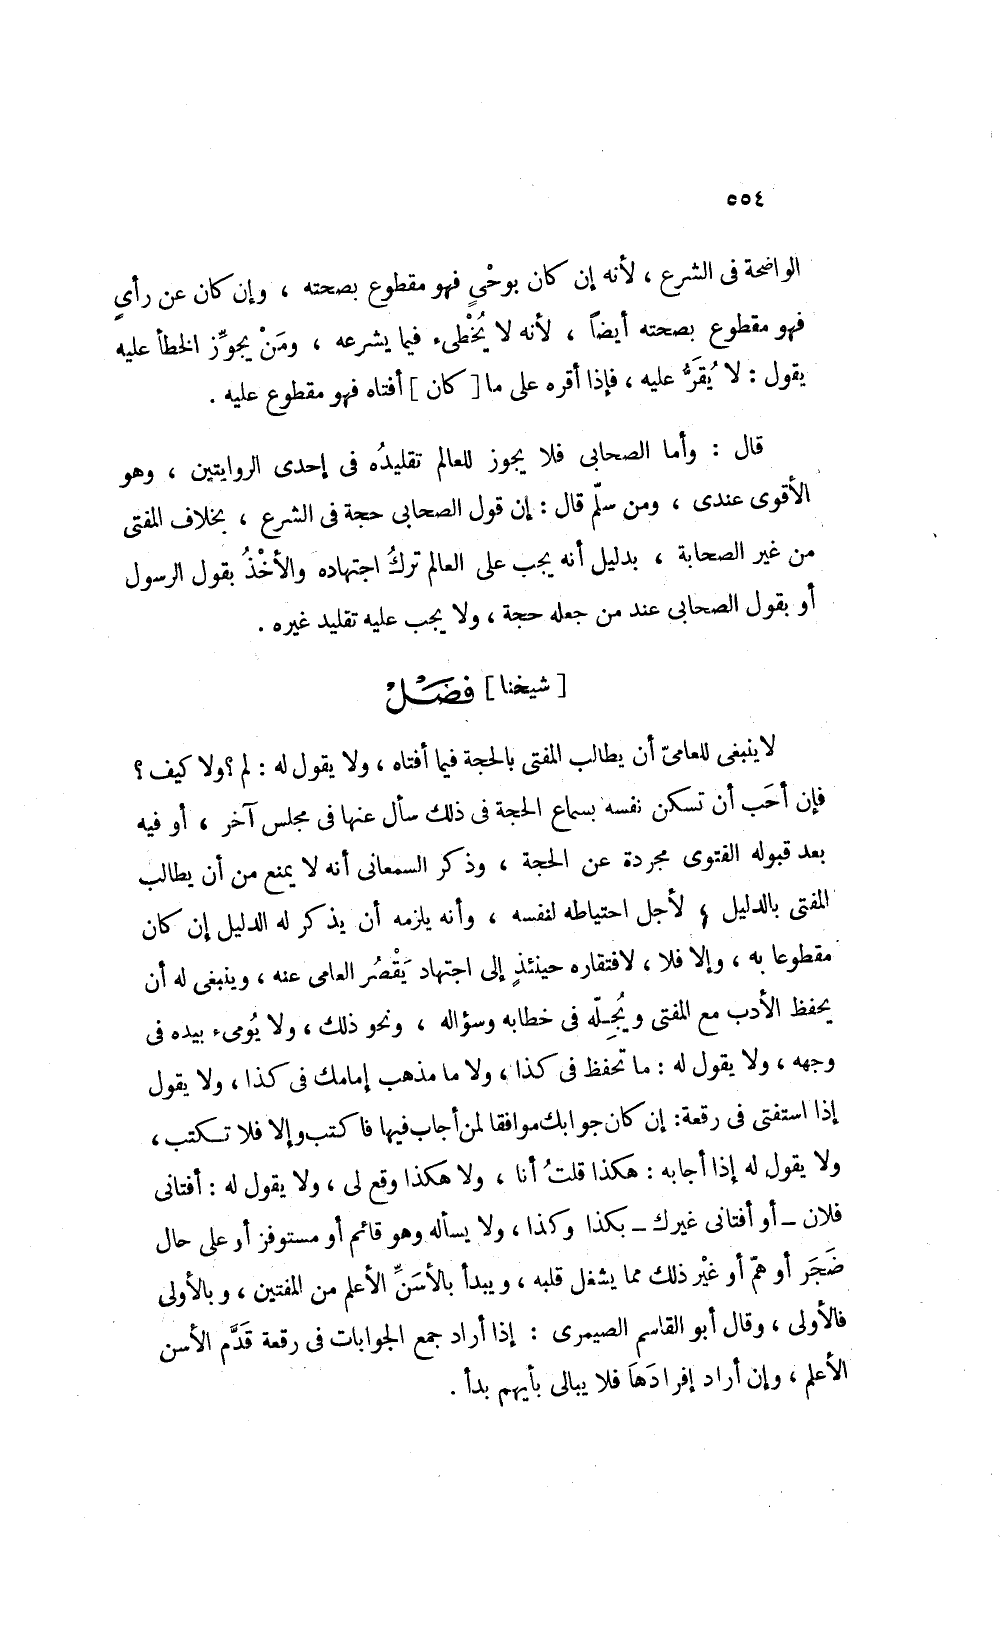 ٥٥٤
الواضحة فى الشرع ، لأنه إن كان بوحْيٍ فهو مقطوع بصحته ، وإن كان عن رأيٍ
فهو مقطوع بصحته أيضاً ، لأنه لا يُخْطىء فيما يشرعه ، ومَنْ يجوِّز الخطأ عليه
يقول : لا يُقَرُّ عليه ، فإذا أقره على ما [ كان ] أفتاه فهو مقطوع عليه .
قال : وأما الصحابى فلا يجوز للعالم تقليدُه فى إحدى الروايتين ، وهو
الأقوى عندى ، ومن سلّم قال : إن قول الصحابى حجة فى الشرع ، بخلاف المفتى
من غير الصحابة ، بدليل أنه يجب على العالم تركُ اجتهاده والأخْذُ بقول الرسول
أو بقول الصحابى عند من جعله حجة ، ولا يجب عليه تقليد غيره .
[ شيخنا ] فَصَـْـلْ
لاينبغى للعامىّ أن يطالب المفتى بالحجة فيما أفتاه ، ولا يقول له : لم ؟ ولا كيف ؟
فإن أحَب أن تسكن نفسه بسماع الحجة فى ذلك سأل عنها فى مجلس آخر ، أو فيه
بعد قبوله الفتوى مجردة عن الحجة ، وذكر السمعانى أنه لا يمنع من أن يطالب
المفتى بالدليل ؛ لأجل احتياطه لنفسه ، وأنه يلزمه أن يذكر له الدليل إن كان
مقطوعا به ، وإلا فلا ، لافتقاره حينئذٍ إلى اجتهاد يَقْصُر العامى عنه ، وينبغى له أن
يحفظ الأدب مع المفتى ويُجِـلّه فى خطابه وسؤاله ، ونحو ذلك ، ولا يُومىء بيده فى
وجهه ، ولا يقول له : ما تحفظ فى كذا ، ولا ما مذهب إمامك فى كذا ، ولا يقول
إذا استفتى فى رقعة : إن كان جوابك موافقا لمن أجاب فيها فاكتب وإلا فلا تـكتب ،
ولا يقول له إذا أجابه : هكذا قلتُ أنا ، ولا هكذا وقع لى ، ولا يقول له : أفتانى
فلان ـ أو أفتانى غيرك ـ بكذا وكذا ، ولا يسأله وهو قائم أو مستوفز أو على حال
ضَجَر أو همّ أو غيْر ذلك مما يشغل قلبه ، ويبدأ بالأسَنِّ الأعلم من المفتين ، وبالأولى
فالأولى ، وقال أبو القاسم الصيمرى : إذا أراد جمع الجوابات فى رقعة قَدَّم الأسن
الأعلم ، وإن أراد إفرادَهَا فلا يبالى بأيهم بدأ .